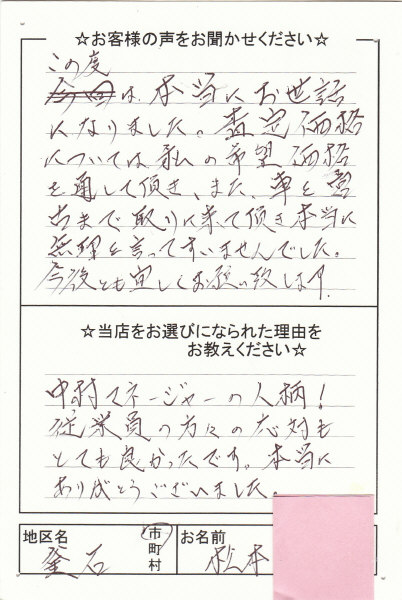 ☆お客様の声をお聞かせください☆
この度
は本当にお世話
になりました。査定価格
については私の希望価格
を通して頂き、また、車を宮
古まで取りに来て頂き本当に
無理を言ってすいませんでした。
今後とも宜しくお願い致します。
☆当店をお選びになられた理由を
お教えください☆
中村マネージャーの人柄！
従業員の方々の応対も
とても良かったです。本当に
ありがとうございました。
地区名
釜石
市
町
村
お名前
松本